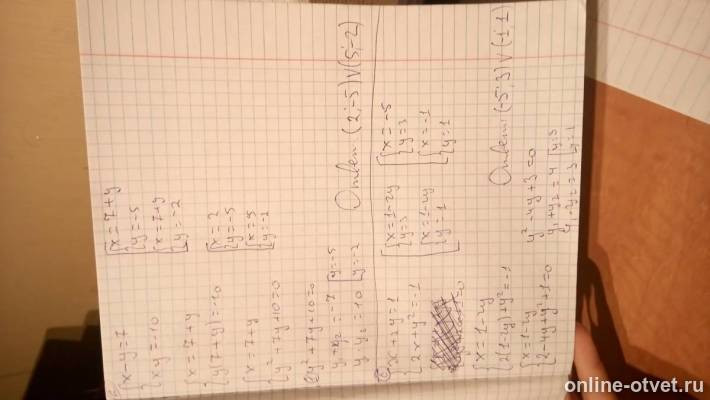 {x-y=7
{xy=-10
{x=7+y
{y(7+y)=-10
{x=7+y
{y²+7y+10=0
y²+7y+10=0
y₁+y₂=-7 [y=-5
y₁y₂=10 [y=-2
[{x=7+y
{y=-5
{x=7+y
{y=-2
[{x=2
{y=-5
{x=5
{y=-2
Ответ: (2;-5)V(5;-2)
{x+2y=1
{2x+y²=-1
{x=1-2y
{2(1-2y)+y²=-1
{x=1-2y
{2-4y+y²+1=0
y²-4y+3=0
y₁+y₂=4 [y=3
y₁·y₂=3 [y=1
[{x=1-2y
{y=3
{x=1-2y
{y=1
[{x=-5
{y=3
{x=-1
{y=1
Ответ: (-5;3)V(-1;1)
online-otvet.ru